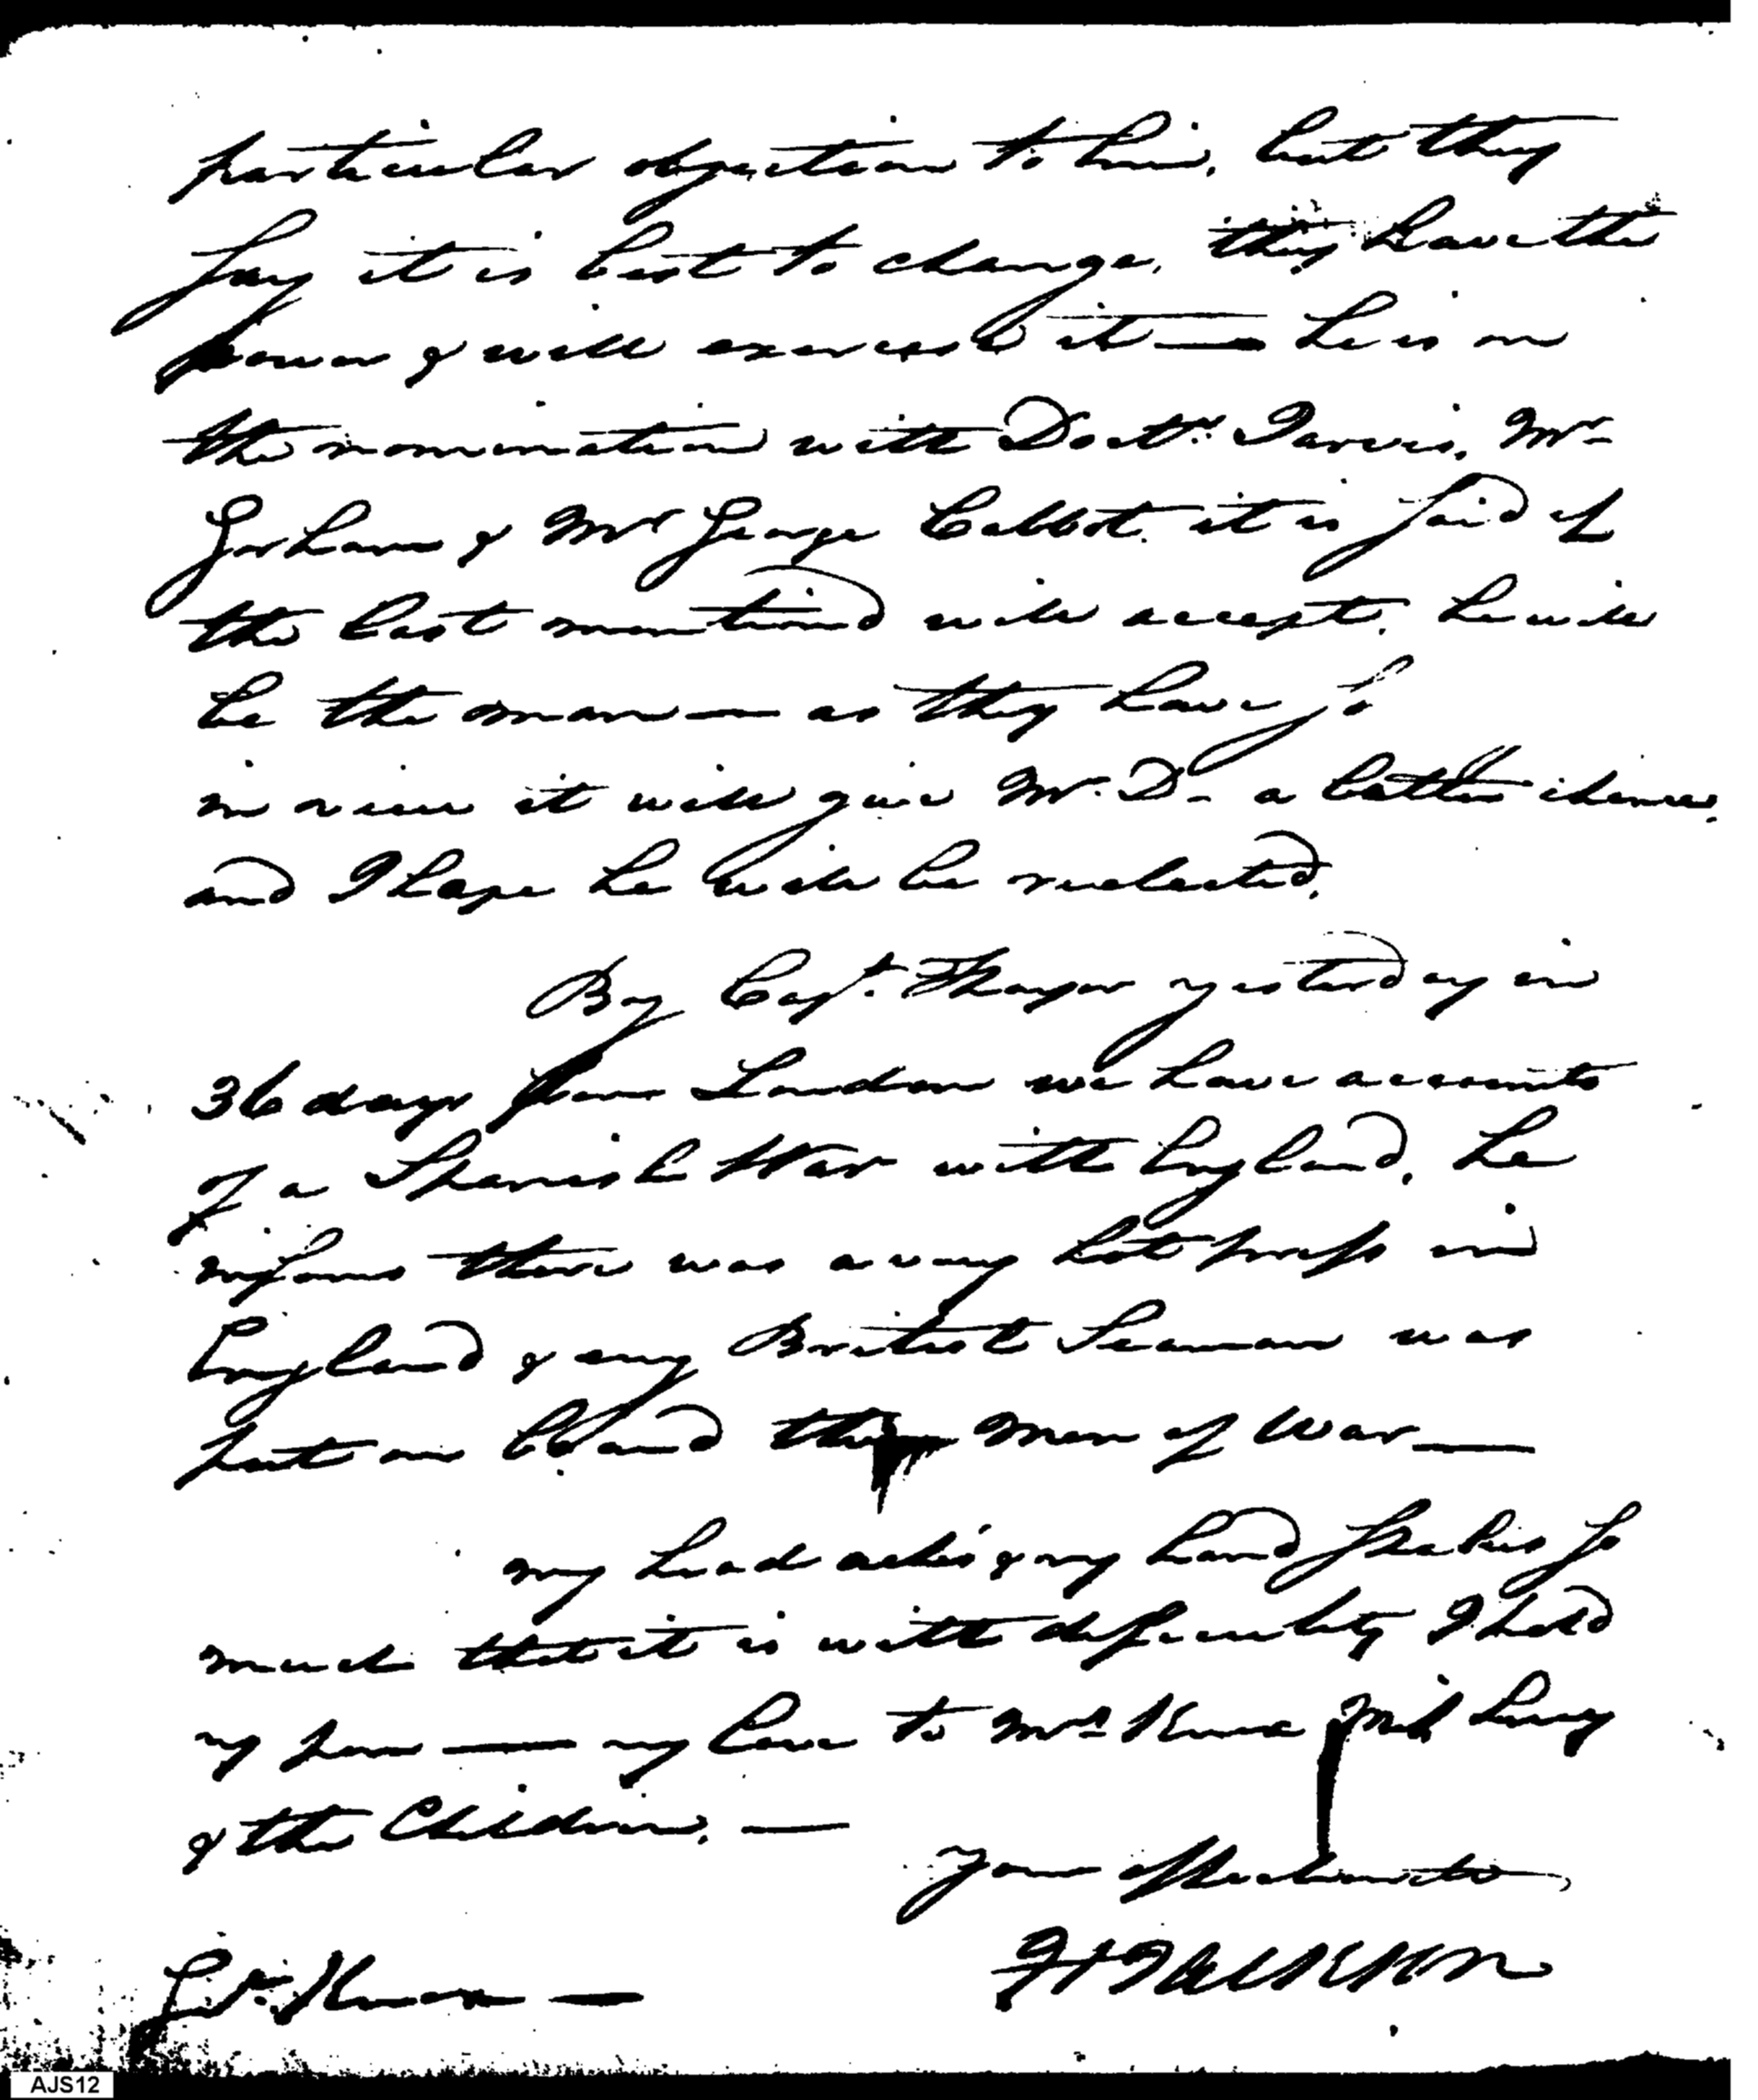 particular objection to him, but they
say it is best to change, they have the
power & will exercise it — he is in
the nomination with Doctr. Jarvis, Mr
Gorham & Mr George Cabbot. it is said if
the last mentioned will accept, he will
be the man — as they have so
in view it will give Mr. D- a better chance,
and I hope he will be reelected.
By Capt. Thayer yesterday in
36 days from London we have accounts
of a Spanish War with England, he
informs there was a very hot press in
England & any British Seaman was
put on board their Men of War —
my head aches & my hand shakes so
much that it is with difficulty I hold
my pen — my love to Mrs Knox Miss Lucy
& the Children. —
Your affectionate
H Jackson
Gl. Knox —
AJS12